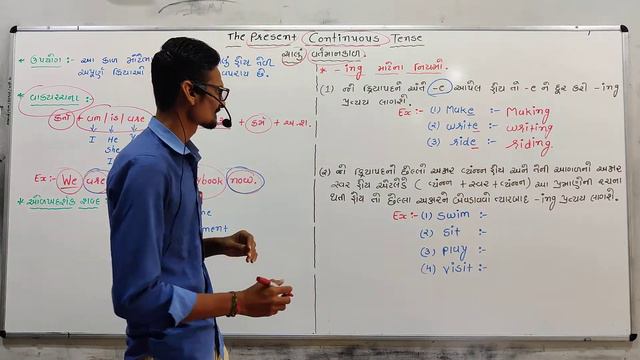 The Present Continuous Tense
ચાલુ વર્તમાનકાળ.
* ઉપયોગ:- આ કાળ
અપૂર્ણ ક્રિયાઓ વપરાય છે.
* વાક્યરચના:-
કર્તા + am / is / are + કર્મ + અ.શ.
I He
She
Ex:- We are book now.
* ઓળખદર્શક શબ્દ
* -ing માટેના નિયમો.
(1) જો ક્રિયાપદને અંતે -e આવેલ હોય તો -e ને દૂર કરી -ing
પ્રત્યય લાગશે.
Ex:- (1) Make :- Making
(2) write :- writing
(3) ride :- riding.
(2) જો ક્રિયાપદનો છેલ્લો અક્ષર વ્યંજન હોય અને તેની આગળનો અક્ષર
સ્વર હોય એટલેકે (વ્યંજન + સ્વર + વ્યંજન) આ પ્રમાણેની રચના
થતી હોય તો છેલ્લા અક્ષરને બેવડાવવો ત્યારબાદ -ing પ્રત્યય લાગશે.
Ex:- (1) Swim :-
(2) Sit :-
(3) Play :-
(4) visit :-